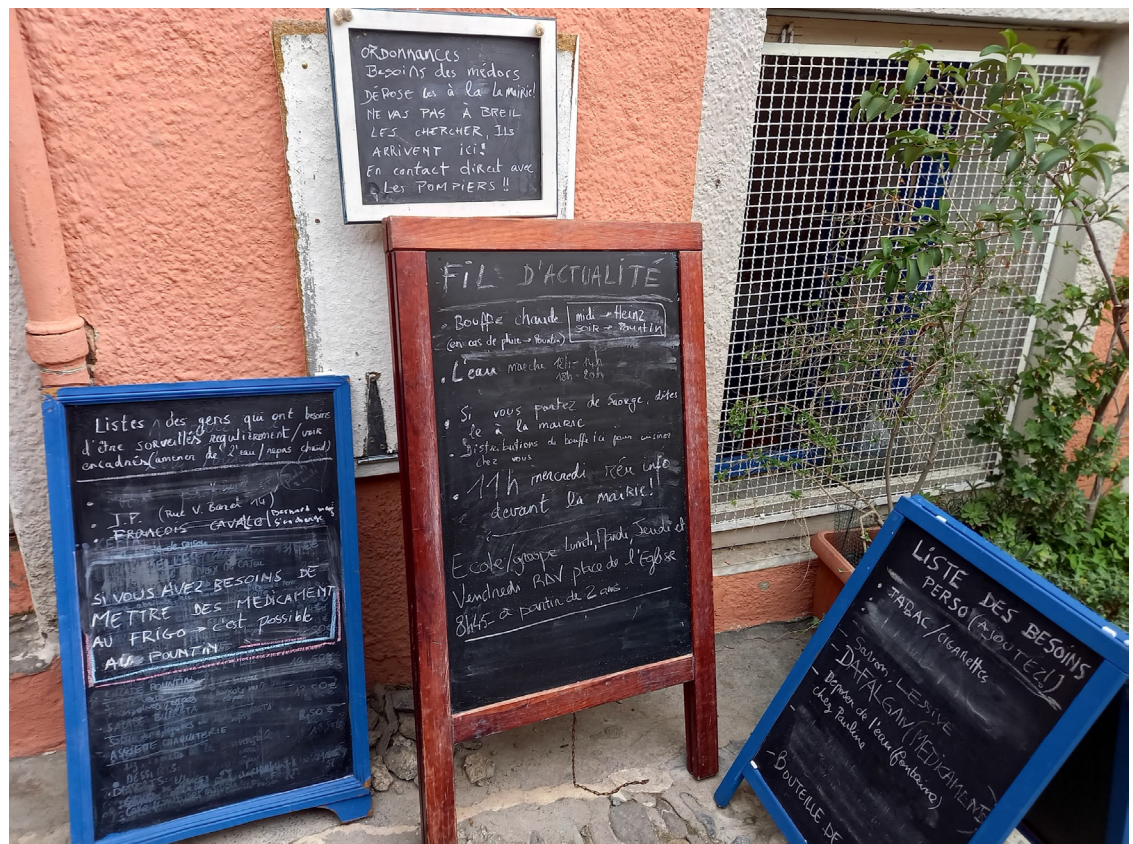 ORDONNANCES
Besoins des médocs
DÉPOSE les à la La mairie!
NE VAS PAS À BREIL
LES CHERCHER, ILS
ARRIVENT ici!
En contact direct avec
Les POMPIERS !!
FIL D'ACTUALITÉ
Bouffe chaude midi → Heinz
(en cas de pluie → Pountin) soir → Pountin
L'eau marche 12h - 14h
18h - 20h
Si vous partez de Saorge, dites
le à la mairie
Distributions de bouffe ici pour cuisiner
chez vous
11h mercredi Réu info
devant la mairie!
Ecole/groupe Lundi, Mardi, Jeudi et
Vendredi RDV place de l'Eglise
8h45 à partir de 2 ans
Listes des gens qui ont besoins
d'être surveillés regulièrement/voir
encadrés (amener de l'eau/repas chaud)
J.P. (Rue V. 14)
FRANÇOIS CAVALE/
SI VOUS AVEZ BESOINS DE
METTRE DES MEDICAMENT
AU FRIGO → c'est possible
AU POUNTIN
POUNTIN
ASSIETTE CHARCUTERIE
LISTE DES BESOINS
PERSO (AJOUTEZ!!)
TABAC/cigarettes
- Savon, LESSIVE
- DAFALGAN (MÉDICAMENTS)
Deposer de l'eau (fontaine)
chez Pauline
- BOUTEILLE DE